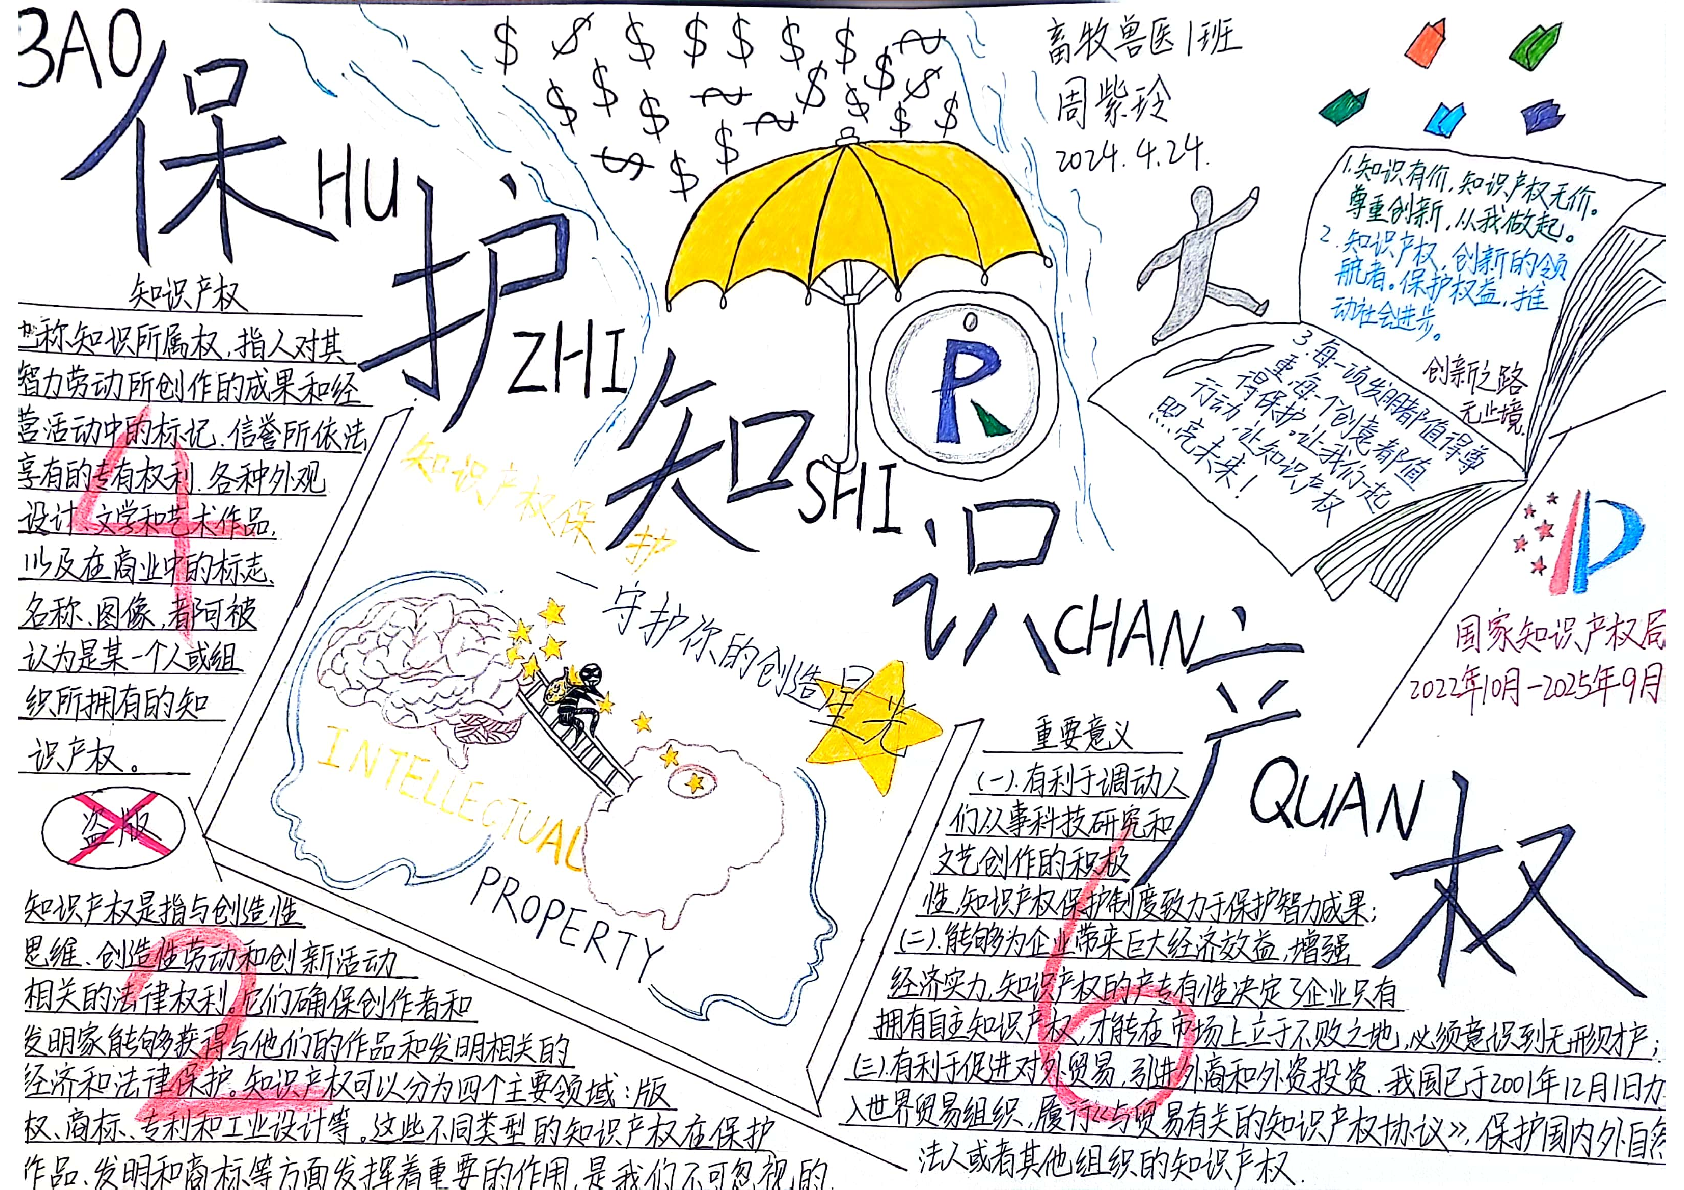 BAO
保
HU
护
ZHI
知
SHI
识
CHAN
产
QUAN
权
畜牧兽医1班
周紫玲
2024.4.24.
1.知识有价,知识产权无价。
尊重创新,从我做起。
2.知识产权,创新的领
航者。保护权益,推
动社会进步。
3.每一项发明都值得尊
重,每一个创意都值
得保护,让我们一起
行动,让知识产权
照亮未来!
创新之路
无止境.
R
国家知识产权局
2022年10月-2025年9月
知识产权
也称知识所属权,指人对其
智力劳动所创作的成果和经
营活动中的标记、信誉所依法
享有的专有权利.各种外观
设计、文学和艺术作品,
以及在商业中的标志、
名称、图像,都可被
认为是某一个人或组
织所拥有的知
识产权。
4
盗版
知识产权是指与创造性
思维、创造性劳动和创新活动
相关的法律权利。它们确保创作者和
发明家能够获得与他们的作品和发明相关的
经济和法律保护。知识产权可以分为四个主要领域:版
权、商标、专利和工业设计等。这些不同类型的知识产权在保护
作品、发明和商标等方面发挥着重要的作用,是我们不可忽视的
2
知识产权保护
—守护你的创造星光
INTELLECTUAL
PROPERTY
重要意义
(一).有利于调动人
们从事科技研究和
文艺创作的积极
性.知识产权保护制度致力于保护智力成果;
(二).能够为企业带来巨大经济效益,增强
经济实力.知识产权的产专有性决定了企业只有
拥有自主知识产权,才能在市场上立于不败之地,必须意识到无形财产;
(三).有利于促进对外贸易,引进外商和外资投资.我国已于2001年12月1日加
入世界贸易组织,履行《与贸易有关的知识产权协议》,保护国内外自然
法人或者其他组织的知识产权.
6